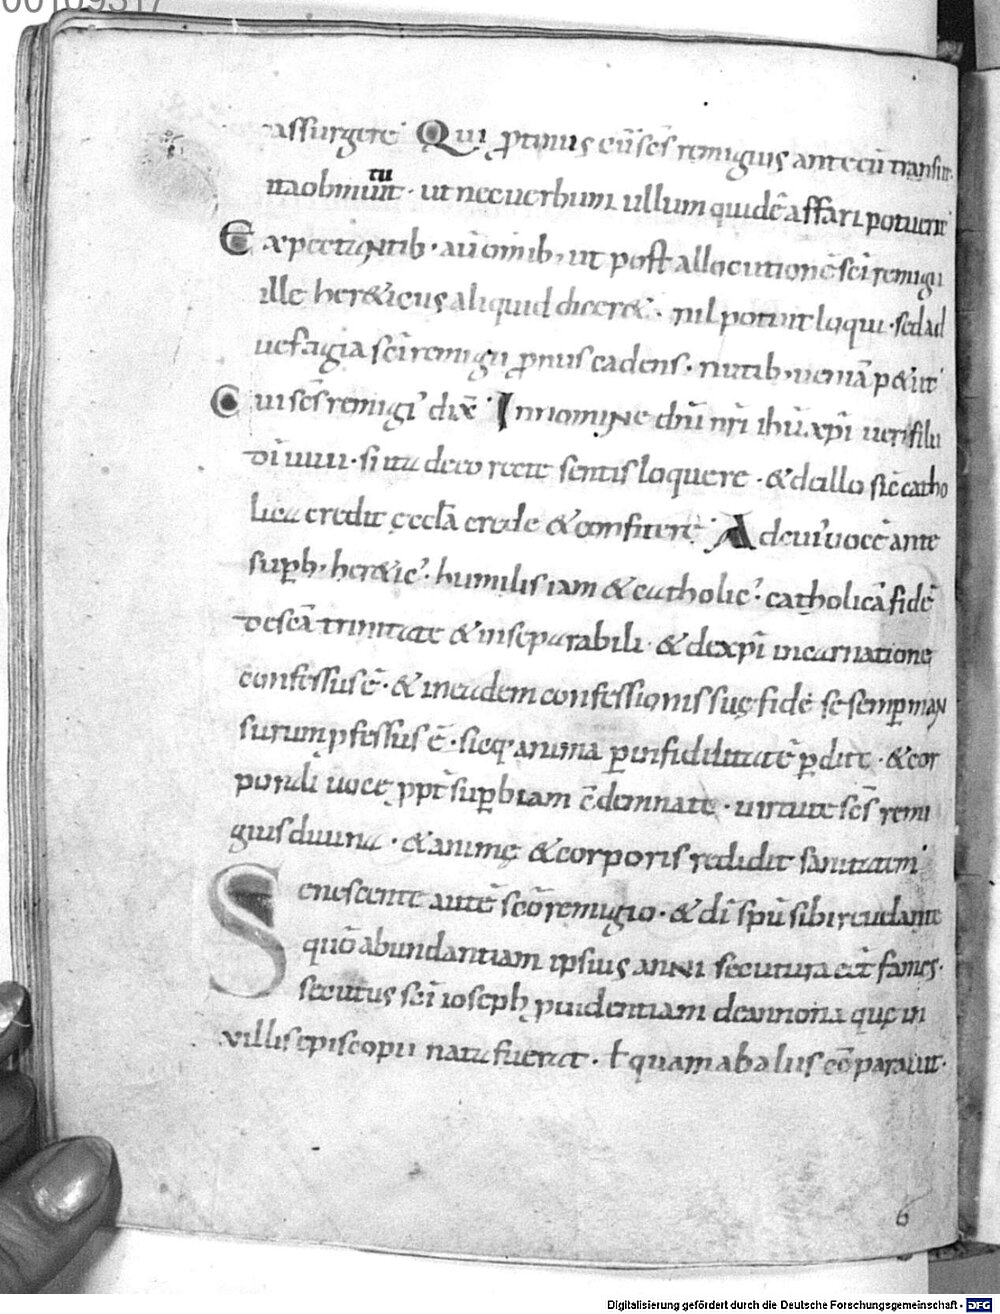 00109317
assurgere Qui ꝓtinus eū scs remigius ante eū transiit
ita obmutuit · ut nec uerbum ullum quidē affari potuerit
Expectantib; aū omib; ut post allocutionē sci remigii
ille her&icus aliquid dicer& · nil potuit loqui · sed ad
uestagia sci remigii ꝓnus cadens · nutib; ueniā p&iit
Cui scs remigi' dix̄ In nomine dn̄i nr̄i ihū xp̄i ueri filii
dī uiui · si ita de eo recte sentis loquere · & de illo sic̄ catho
lica credit ęccl̄a crede & confitere Ad cui' uocē ante
supb' her&ic' · humilis iam & catholic' catholicā fidē
de scā trinitate & inseparabili · & de xp̄i incarnatione
confessus ē · & in eadem confessionis suę fide se semꝑ man
surum ꝓfessus ē · sicq; anima ꝑ infidilitatē ꝑdite · & cor
porali uoce ꝓpt̄ suꝑbiam cōdemnate · uirtute scs remi
gius diuina · & animę & corporis reddidit sanitatem
Senescente autē scō remigio · & dī spū sibi reuelante
quō abundantiam ipsius anni secutura eēt fames ·
secutus sci ioseph ꝓuidentiam de annona quę in
uillis episcopii nata fuerat · ł quam ab aliis cōparauit ·
6
Digitalisierung gefördert durch die Deutsche Forschungsgemeinschaft - DFG